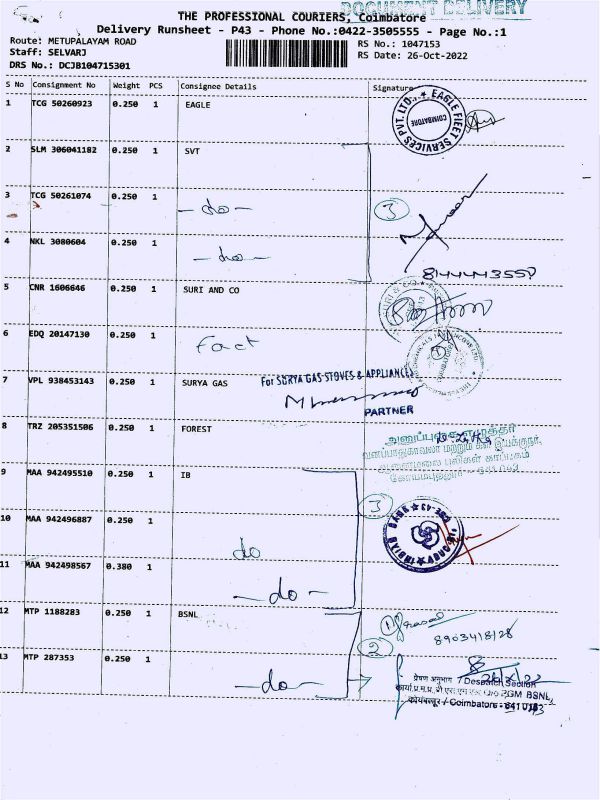 DOCUMENT DELIVERY
THE PROFESSIONAL COURIERS, Coimbatore
Delivery Runsheet - P43 - Phone No.:0422-3505555 - Page No.:1
Route: METUPALAYAM ROAD
RS No.: 1047153
Staff: SELVARJ
RS Date: 26-Oct-2022
DRS No.: DCJB104715301
S No Consignment No Weight PCS Consignee Details Signature
1 TCG 50260923 0.250 1 EAGLE
EAGLE FLEET SERVICES PVT. LTD. COIMBATORE
2 SLM 306041182 0.250 1 SVT
3 TCG 50261074 0.250 1 - do - 3
4 NKL 3080604 0.250 1 - do -
5 CNR 1606646 0.250 1 SURI AND CO
6 EDQ 20147130 0.250 1 Fact
7 VPL 938453143 0.250 1 SURYA GAS
For SURYA GAS STOVES & APPLIANCES
PARTNER
8 TRZ 205351506 0.250 1 FOREST
9 MAA 942495510 0.250 1 IB
10 MAA 942496887 0.250 1 do 3
11 MAA 942498567 0.380 1 - do -
12 MTP 1188283 0.250 1 BSNL
8903418128
2
13 MTP 287353 0.250 1 - do -
प्रेषण अनुभाग / Despatch Section
PGM BSNL,
कोयंबत्तूर / Coimbatore